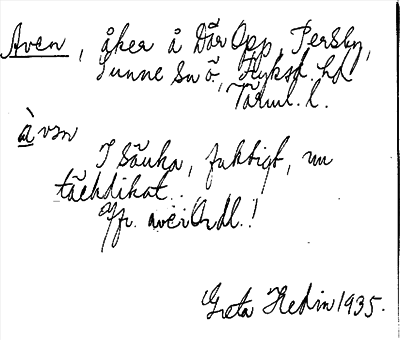 Aven, åker å Där Opp, Persby,
Sunne sn ö, Fryksd. hd
Värml. l.
àvm
I sänka, fuktigt, nu
täckdikat.
Jfr. aver Ordl.!
Greta Hedin 1935.